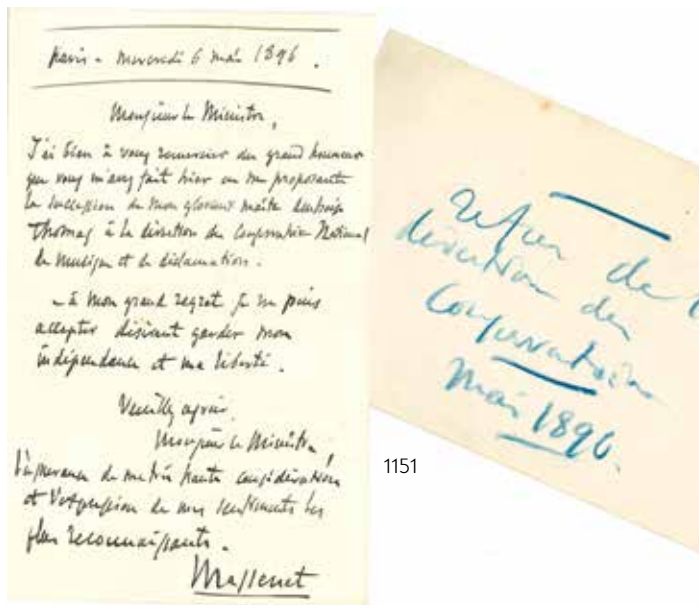 Paris - mercredi 6 mai 1896.
Monsieur le Ministre,
J'ai bien à vous remercier du grand honneur
que vous m'avez fait hier en me proposant
la succession de mon glorieux maître Ambroise
Thomas à la direction du Conservatoire National
de musique et de déclamation.
- à mon grand regret je ne puis
accepter désirant garder mon
indépendance et ma liberté.
Veuillez agréer,
Monsieur le Ministre,
l'assurance de ma très haute considération
et l'expression de mes sentiments les
plus reconnaissants.
Massenet
Refus de l
direction du
Conservatoire
Mai 1896.
1151